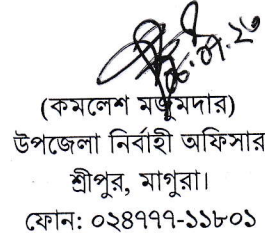 ০৮.০৭.২৬
(কমলেশ মজুমদার)
উপজেলা নির্বাহী অফিসার
শ্রীপুর, মাগুরা।
ফোন: ০২৪৭৭৭-১১৮০১